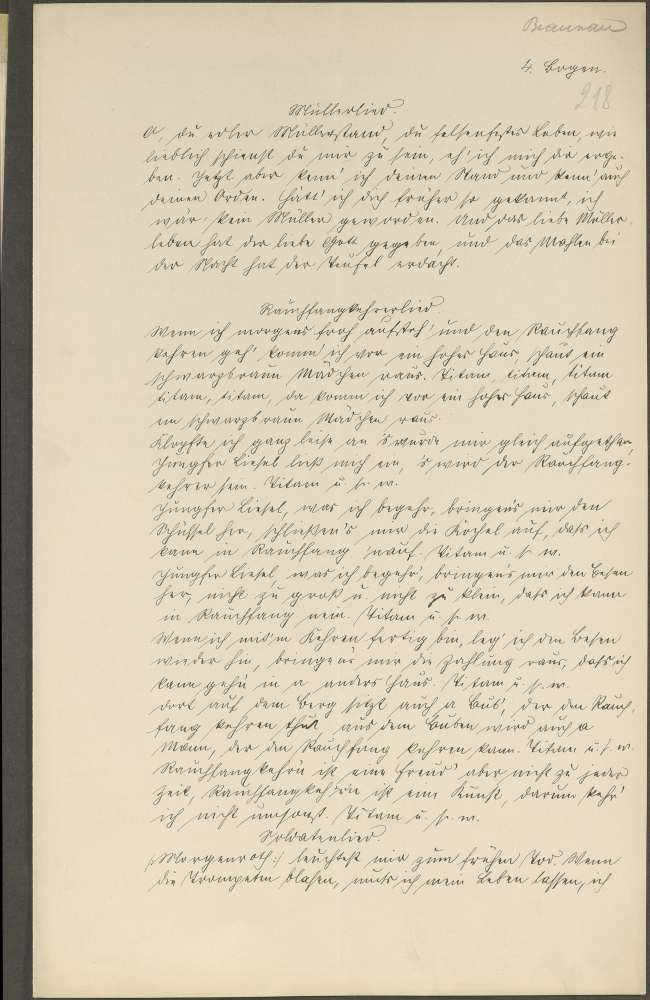 Braunau
4. Bogen.
218
Müllerlied.
O, du edler Müllerstand, du felsenfestes Leben, wie
lieblich schienst du mir zu sein, eh' ich mich dir erge-
ben. Jetzt aber kenn' ich deinen Stand und kenn' auch
deinen Orden. Hätt' ich dich früher so gekannt, ich
wär' kein Müller geworden. Und das liebe Müller-
leben hat der liebe Gott gegeben, und das Mahlen bei
der Nacht hat der Teufel erdacht.
Rauchfangkehrerlied.
Wenn ich morgens froh aufsteh' und den Rauchfang
kehren geh' komm' ich vor ein hohes Haus, schaut ein
schwarzbraun Mädchen raus. Titam, titam, titam
titam, titam, da komm ich vor ein hohes Haus, schaut
ein schwarzbraun Mädchen raus.
Klopfte ich ganz leise an 's wurde mir gleich aufgethan,
Jungfer Liesel ließ mich ein, 's wird der Rauchfang-
kehrer sein. Titam u. s. w.
Jungfer Liesel, was ich begehr, bringen's mir den
Schüssel her, schließen's mir die auf, dass ich
kann in Rauchfang nauf. Titam u. s. w.
Jungfer Liesel, was ich begehr', bringen's mir den Besen
her, nicht zu groß u. nicht zu klein, dass ich kann
in Rauchfang nein. Titam u. s. w.
Wenn ich mit'm Kehren fertig bin, leg' ich den Besen
wieder hin, bringen's mir die Zahlung raus, dass ich
kann geh'n in a anders Haus. Titam u. s. w.
Dort auf dem Berg sitzt auch a Bub', der den Rauch-
fang kehren thut aus dem Buben wird auch a
Mann, der den Rauchfang kehren kann. Titam u. s. w.
Rauchfangkehr'n ist eine Freud' aber nicht zu jeder
Zeit, Rauchfangkehren ist eine Kunst, darum kehr'
ich nicht umsonst. Titam u. s. w.
Soldatenlied.
/: Morgenroth :/ leuchtest mir zum frühen Tod. Wenn
die Trompeten blasen, muss ich mein Leben lassen, ich